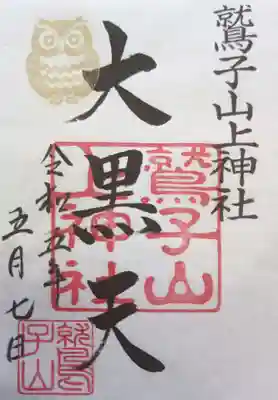 鷲子山上神社
大黒天
令和五年
五月七日
鷲子山
上神社
鷲子山